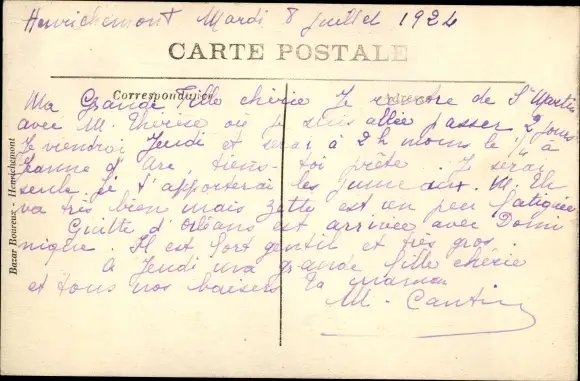 Henrichemont Mardi 8 Juillet 1924
CARTE POSTALE
Correspondance
Adresse
Ma Grande Fille chérie Je rentre de St Martin
avec M. Thérèse où je suis allée passer 2 jours
Je viendrai Jeudi et serai à 2h moins le 1/4 à
Jeanne d'Arc tiens-toi prête. Je serai
seule. Je t'apporterai les jumeaux. M. Eli
va très bien mais Zette est un peu fatiguée
Guitte d'Orléans est arrivée avec Domi
nique. Il est fort gentil et très gros.
A Jeudi ma grande fille chérie
et tous nos baisers Ta maman
M. Cantin
Bazar Boureux - Henrichemont